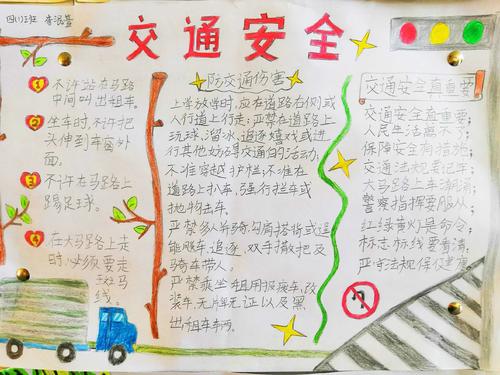 四(1)班
交通安全
1 不许站在马路
中间叫出租车。
2 坐车时,不许把
头伸到车窗外
面。
3 不许在马路上
踢足球。
4 在大马路上走
时,必须要走
斑马
线。
防交通伤害
上学放学时,应在道路右侧或
人行道上行走;严禁在道路上
玩球、溜冰、追逐嬉戏或进
行其他妨碍交通的活动;
不准穿越护栏;不准在
道路上扒车,强行拦车或
抛物击车。
严禁多人并骑,勾肩搭背或逞
能飚车、追逐、双手撒把及
骑车带人。
严禁乘坐租用报废车,改
装车,无牌无证以及黑
出租车
交通安全真重要
交通安全真重要,
人民生活离不了;
保障安全有措施,
交通法规要记牢,
大马路上车潮涌,
警察指挥要服从;
红绿黄灯是命令,
标志标线要看清,
严守法规保健康